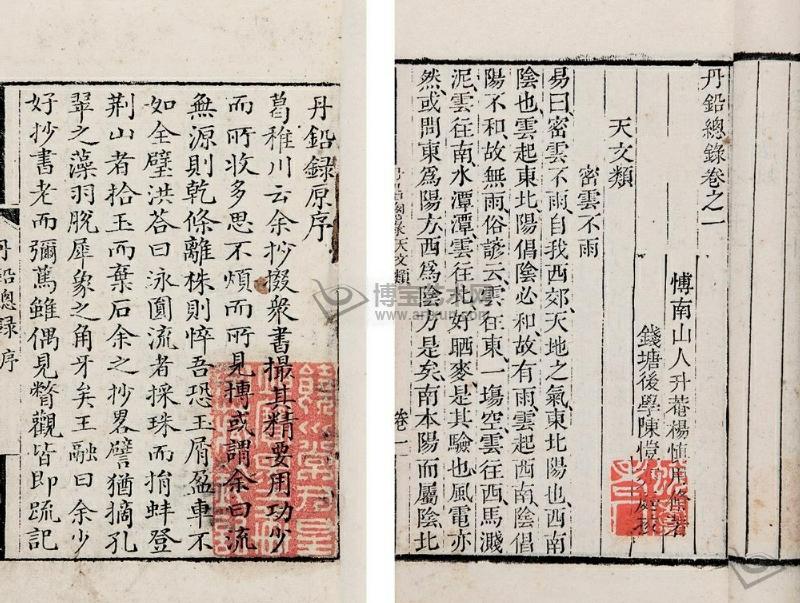 丹鉛總錄卷之一
博南山人升菴楊慎用修著
錢塘後學陳愷
天文類
密雲不雨
易曰密雲不雨自我西郊天地之氣東北陽也西南
陰也雲起東北陽倡陰必和故有雨雲起西南陰倡
陽不和故無雨俗諺云雲往東一塲空雲往西馬濺
泥雲往南水潭潭雲往北好晒麥是其驗也風電亦
然或問東爲陽方西爲陰方是矣南本陽而屬陰北
天文類
卷一
丹鉛録原序
葛稚川云余抄掇衆書撮其精要用功少
而所收多思不煩而所見博或謂余曰流
無源則乾條離株則悴吾恐玉屑盈車不
如全璧洪荅曰泳圎流者採珠而捐蚌登
荆山者拾玉而棄石余之抄畧譬猶摘孔
翠之藻羽脫犀象之角牙矣王融曰余少
好抄書老而彌篤雖偶見瞥觀皆即疏記
丹鉛總録序
博宝艺术网